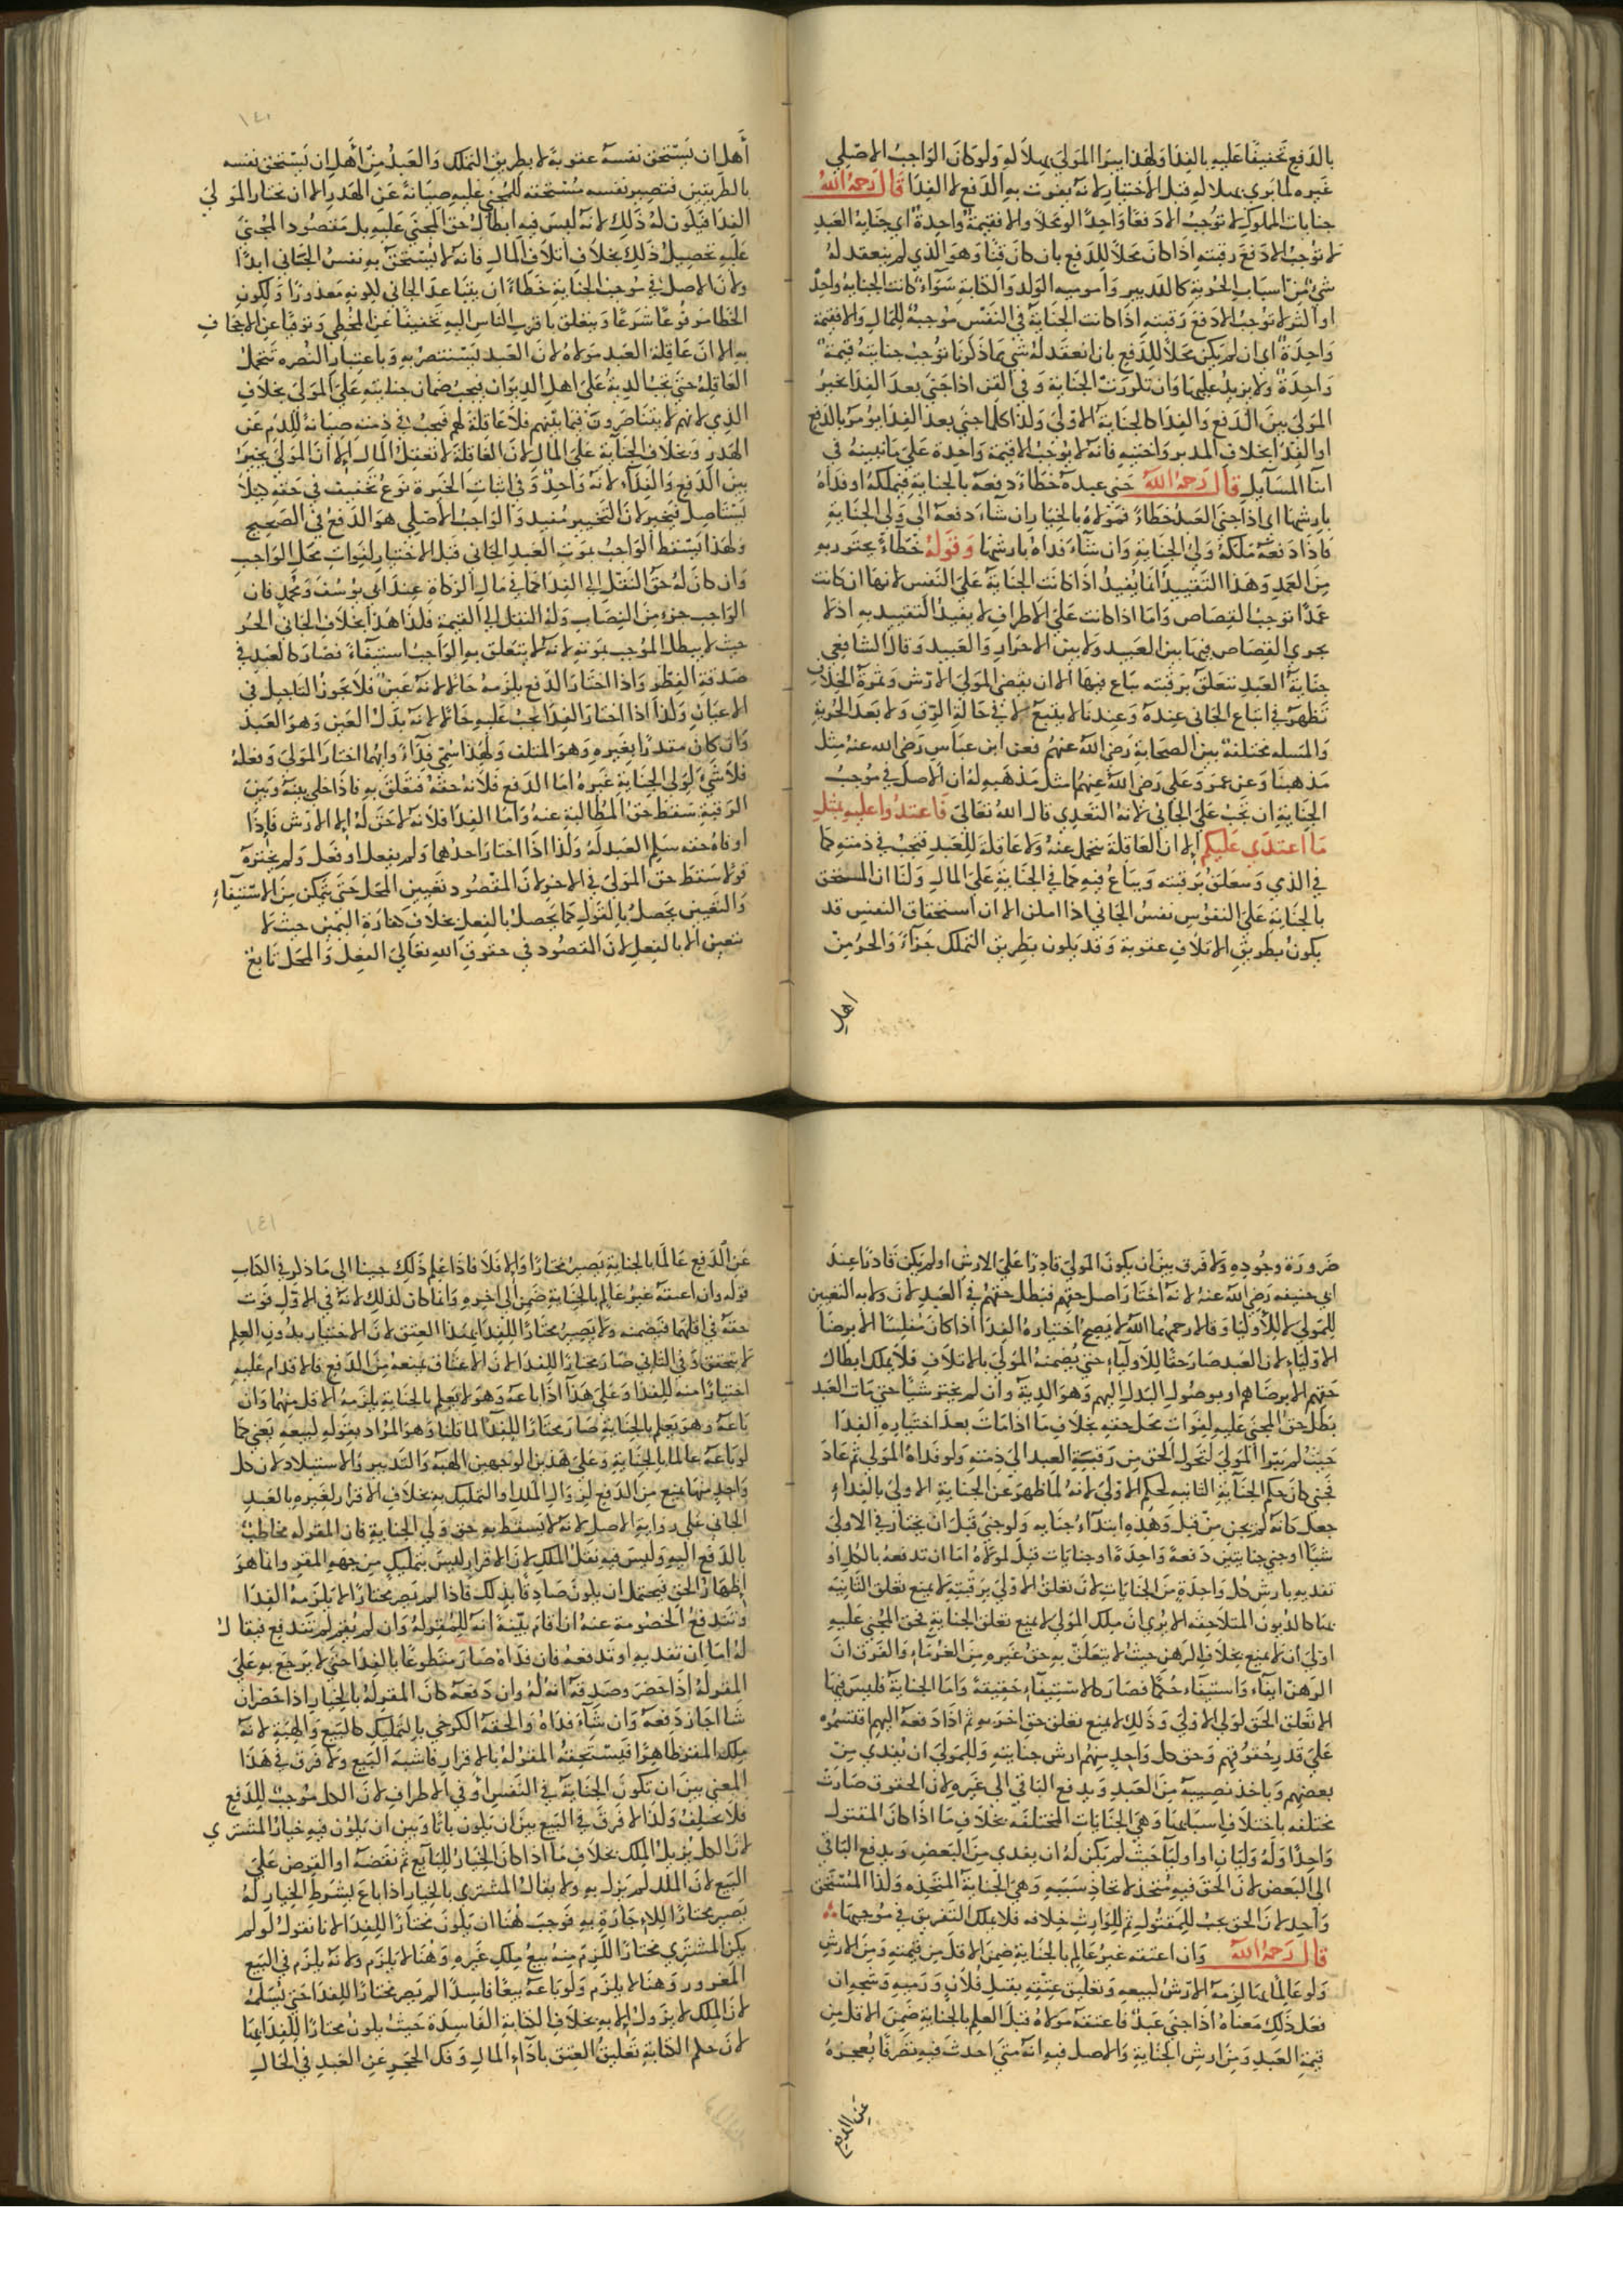 بالدفع تخفيفا عليه بالفدا ولهذا يبرا المولى بهلاكه ولو كان الواجب الاصلي
غيره لما بري بهلاكه قبل الاختيار لانه يفوت به الدفع لا الفدا قال رحمه الله
جنايات المملوك لا توجب الا دفعا واحدا لو محلا والا فقيمة واحدة اي جناية العبد
لا توجب الا دفع رقبته اذا كان محلا للدفع بان كان قنا وهو الذي لم ينعقد له
شي من اسباب الحرية كالتدبير وامومية الولد والكتابة سواء كانت الجناية واحدة
او اكثر لا توجب الا دفع رقبته اذا كانت الجناية في النفس موجبة للمال والا فقيمة
واحدة اي ان لم يكن محلا للدفع بان انعقد له شي مما ذكرنا توجب جنايته قيمة
واحدة ولا يزيد عليها وان تكررت الجناية وفي القن اذا جنى بعد الفدا يخير
المولى بين الدفع والفدا كالجناية الاولى ولذا كلما جنى بعد الفدا يومر بالدفع
او الفدا بخلاف المدبر واختيه فانه لا يوجب الا قيمة واحدة على ما نبينه في
اثنا المسايل قال رحمه الله جنى عبده خطاء دفعه بالجناية فيملكه او فداه
بارشها اي اذا جنى العبد خطاء فمولاه بالخيار ان شاء دفعه الى ولي الجناية
فاذا دفعه ملكه ولي الجناية وان شاء فداه بارشها وقوله خطاء يحترز به
من العمد وهذا التقييد انما يفيد اذا كانت الجناية على النفس لانها ان كانت
عمدا توجب القصاص واما اذا كانت على الاطراف لا يفيد التقييد به اذ لا
يجري القصاص فيما بين العبيد ولا بين الاحرار والعبيد وقال الشافعي
جناية العبد تتعلق برقبته يباع فيها الا ان يقضي المولى الارش وثمرة الخلاف
تظهر في اتباع الجاني عنده وعندنا لا يتبع لا في حالة الرق ولا بعد الحرية
والمسله مختلفة بين الصحابة رضي الله عنهم فعن ابن عباس رضي الله عنه مثل
مذهبنا وعن عمر وعلي رضي الله عنهما مثل مذهبه له ان الاصل في موجب
الجناية ان تجب على الجاني لانه التعدي قال الله تعالى فاعتدوا عليه بمثل
ما اعتدى عليكم الا ان العاقلة تتحمل عنه ولا عاقلة للعبد فتجب في ذمته كما
في الذي وتتعلق برقبته ويباع فيه كما في الجناية على المال ولنا ان المستحق
بالجناية على النفوس نفس الجاني اذا امكن الا ان استحقاق النفس قد
يكون بطريق الاتلاف عقوبة وقد يكون بطريق التملك جزاء والحر من
اهل
١٤٠
أهل ان يستحق نفسه عقوبة لا بطريق التملك والعبد من اهل ان تستحق نفسه
بالطريقين فتصير نفسه مستحقة للمجني عليه صيانة عن الهدر الا ان يختار المولى
الفدا فيكون له ذلك لانه ليس فيه ابطال حق المجني عليه بل مقصود المجني
عليه تحصيل ذلك بخلاف اتلاف المال فانه لا تستحق به نفس الجاني ابدا
ولان الاصل في موجب الجناية خطاء ان يتباعد الجاني لكونه معذورا ولكون
الخطا مرفوعا شرعا ويتعلق باقرب الناس اليه تخفيفا عن المخطي وتوقيا عن الاجحاف
به الا ان عاقلة العبد مولاه لان العبد يستنصر به وباعتبار النصره تتحمل
العاقلة حتى تجب الدية على اهل الديوان فيجب ضمان جنايته على المولى بخلاف
الذي لانهم لا يتناصرون فيما بينهم فلا عاقلة لهم فيجب في ذمته صيانة للدم عن
الهدر وبخلاف الجناية على المال لان العاقلة لا تعقل المال الا ان المولى يخير
بين الدفع والفداء لانه واحد وفي اثبات الخيرة نوع تخفيف في حقه كيلا
يستاصل فيخير لان التخيير مفيد والواجب الاصلي هو الدفع في الصحيح
ولهذا يسقط الواجب بموت العبد الجاني قبل الاختيار لفوات محل الواجب
وان كان له حق النقل الى الفدا كما في مال الزكاة عند ابي يوسف ومحمد فان
الواجب جزء من النصاب وله النقل الى القيمة فلذا هذا بخلاف الجاني الحر
حيث لا يبطل الموجب بموته لانه لا يتعلق به الواجب استيفاء فصار كالعبد في
صدقة الفطر واذا اختار الدفع يلزمه حالا لانه عين فلا يجوز التاجيل في
الاعيان ولذا اذا اختار الفدا يجب عليه حالا لانه بدل العين وهو العبد
وان كان مقدرا بغيره وهو المتلف ولهذا سمي فداء وايهما اختار المولى وفعله
فلا شي لولي الجناية غيره اما الدفع فلانه حقه فتعلق به فاذا خلى بينه وبين
الرقبة سقط حق المطالبة عنه واما الفدا فلانه لا حق له الا الارش فاذا
اوفاه حقه سلم العبد له ولذا اذا اختار احدهما ولم يفعل او فعل ولم يختره
قولا سقط حق المولى في الاخر لان المقصود تعيين المحل حتى يتمكن من الاستيفاء
والتعيين يحصل بالقول كما يحصل بالفعل بخلاف كفارة اليمين حيث لا
يتعين الا بالفعل لان المقصود في حقوق الله تعالى الفعل والمحل تابع
ضرورة وجوده ولا فرق بين ان يكون المولى قادرا على الارش او لم يكن قادرا عند
ابي حنيفه رضي الله عنه لانه اختار اصل حقهم فبطل حقهم في العبد لان ولايه التعيين
للمولى لا للاوليا وقالا رحمهما الله لا يصح اختياره الفدا اذا كان مفلسا الا برضا
الاولياء لان العبد صار حقا للاولياء حتى يضمنه المولى بالاتلاف فلا يملك ابطال
حقهم الا برضاهم او بوصول البدل اليهم وهو الدية وان لم يختر شيا حتى مات العبد
بطل حق المجني عليه لفوات محل حقه بخلاف ما اذا مات بعد اختياره الفدا
حيث لم يبرا المولى لتحول الحق من رقبة العبد الى ذمته ولو فداه المولى ثم عاد
فجنى كان حكم الجناية الثانيه لحكم الاولى لانه لما طهر عن الجناية الاولى بالفداء
جعل كانه لم يجن من قبل وهذه ابتداء جنايه ولو جنى قبل ان يختار في الاولى
شيا او جنى جنايتين دفعة واحدة او جنايات قيل لمولاه اما ان تدفعه بالكل او
تفديه بارش كل واحدة من الجنايات لان تعلق الاولى برقبته لا يمنع تعلق الثانيه
بها كالديون المتلاحقه الا يرى ان ملك المولى لا يمنع تعلق الجناية فحق المجني عليه
اولى ان لا يمنع بخلاف الرهن حيث لا يتعلق به حق غيره من الغرماء والفرق ان
الرهن ايفاء واستيفاء حكما فصار كالاستيفاء حقيقة واما الجناية فليس فيها
الا تعلق الحق لولي الاولى وذلك لا يمنع تعلق حق اخر به ثم اذا دفعه اليهم فتقسموه
على قدر حقوقهم وحق كل واحد منهم ارش جنايته وللمولى ان يفدي من
بعضهم وياخذ نصيبه من العبد ويدفع الباقي الى غيره لان الحقوق صارت
مختلفه باختلاف اسبابها وهي الجنايات المختلفه بخلاف ما اذا كان المقتول
واحدا وله وليان او اولياء حيث لم يكن له ان يفدي من البعض ويدفع الباقي
الى البعض لان الحق فيه متحد لاتحاد سببه وهي الجناية المتحدة ولذا المستحق
واحد لان الحق يجب للمقتول ثم للوارث خلافه فلا يملك التفريق في موجبها
قال رحمه الله وان اعتقه غير عالم بالجناية ضمن الاقل من قيمته ومن الارش
ولو عالما بها لزمه الارش لبيعه وتعليق عتقه بقتل فلان ورميه وشجه ان
فعل ذلك معناه اذا جنى عبد فاعتقه مولاه قبل العلم بالجناية ضمن الاقل من
قيمة العبد ومن ارش الجناية والاصل فيه انه متى احدث فيه تصرفا يعجزه
عن الدفع
١٤١
عن الدفع عالما بالجناية يصير مختارا والا فلا فاذا علم ذلك جينا الى ما ذكر في الكتاب
قوله وان اعتقه غير عالم بالجناية ضمن الى اخره وانما كان لذلك لانه في الاول فوت
حقه في اقلهما فيضمنه ولا يصير مختارا للفدا بهذا العتق لان الاختيار بدون العلم
لا يتحقق وفي الثاني صار مختارا للفدا لان الاعتاق يمنعه من الدفع فالاقدام عليه
اختيارا منه للفدا وعلى هذا اذا باعه وهو لا يعلم بالجناية يلزمه الاقل منهما وان
باعه وهو يعلم بالجناية صار مختارا للفدا لما قلنا وهو المراد بقوله لبيعه يعني كما
لو باعه عالما بالجناية وعلى هذين الوجهين الهبة والتدبير والاستيلاد لان كل
واحد منها يمنع من الدفع لزوال الملك او التمليك به بخلاف الاقرار لغيره بالعبد
الجاني على رواية الاصل لانه لا يسقط به حق ولي الجناية فان المقر له مخاطب
بالدفع اليه وليس فيه نقل الملك لان الاقرار ليس بتمليك من جهه المقر وانما هو
اظهار الحق فيحتمل ان يكون صادقا بذلك فاذا لم يصر مختارا لا يلزمه الفدا
وتندفع الخصومة عنه ان اقام بينة انه للمقر له وان لم يقم لم تندفع فيقال
له اما ان تفديه او تدفعه فان فداه صار متطوعا بالفدا حتى لا يرجع به على
المقر له اذا حضر وصدقه انه له وان دفعه كان المقر له بالخيار اذا حضر ان
شا اجاز دفعه وان شاء فداه والحقه الكرخي بالتمليك كالبيع والهبة لانه
ملك المقر ظاهرا فيستحقه المقر له بالاقرار فاشبه البيع ولا فرق في هذا
المعنى بين ان تكون الجناية في النفس او في الاطراف لان الكل موجب للدفع
فلا يختلف ولذا لا فرق في البيع بين ان يكون باتا وبين ان يكون فيه خيار المشتري
لان الكل يزيل الملك بخلاف ما اذا كان الخيار للبايع ثم نقضه او العرض على
البيع لان الملك لم يزل به ولا يقال المشتري بالخيار اذا باع بشرط الخيار له
يصير مختارا للاجازة به فوجب هنا ان يكون مختارا للفدا لانا نقول لو لم
يكن المشتري مختارا للزم منه بيع ملك غيره وهنا لا يلزم ولانه يلزم في البيع
الغرور وهنا لا يلزم ولو باعه بيعا فاسدا لم يصر مختارا للفدا حتى يسلمه
لان الملك لا يزول الا به بخلاف الكتابة الفاسدة حيث يكون مختارا للفدا بها
لان حكم الكتابة تعليق العتق باداء المال وفك الحجر عن العبد في الحال